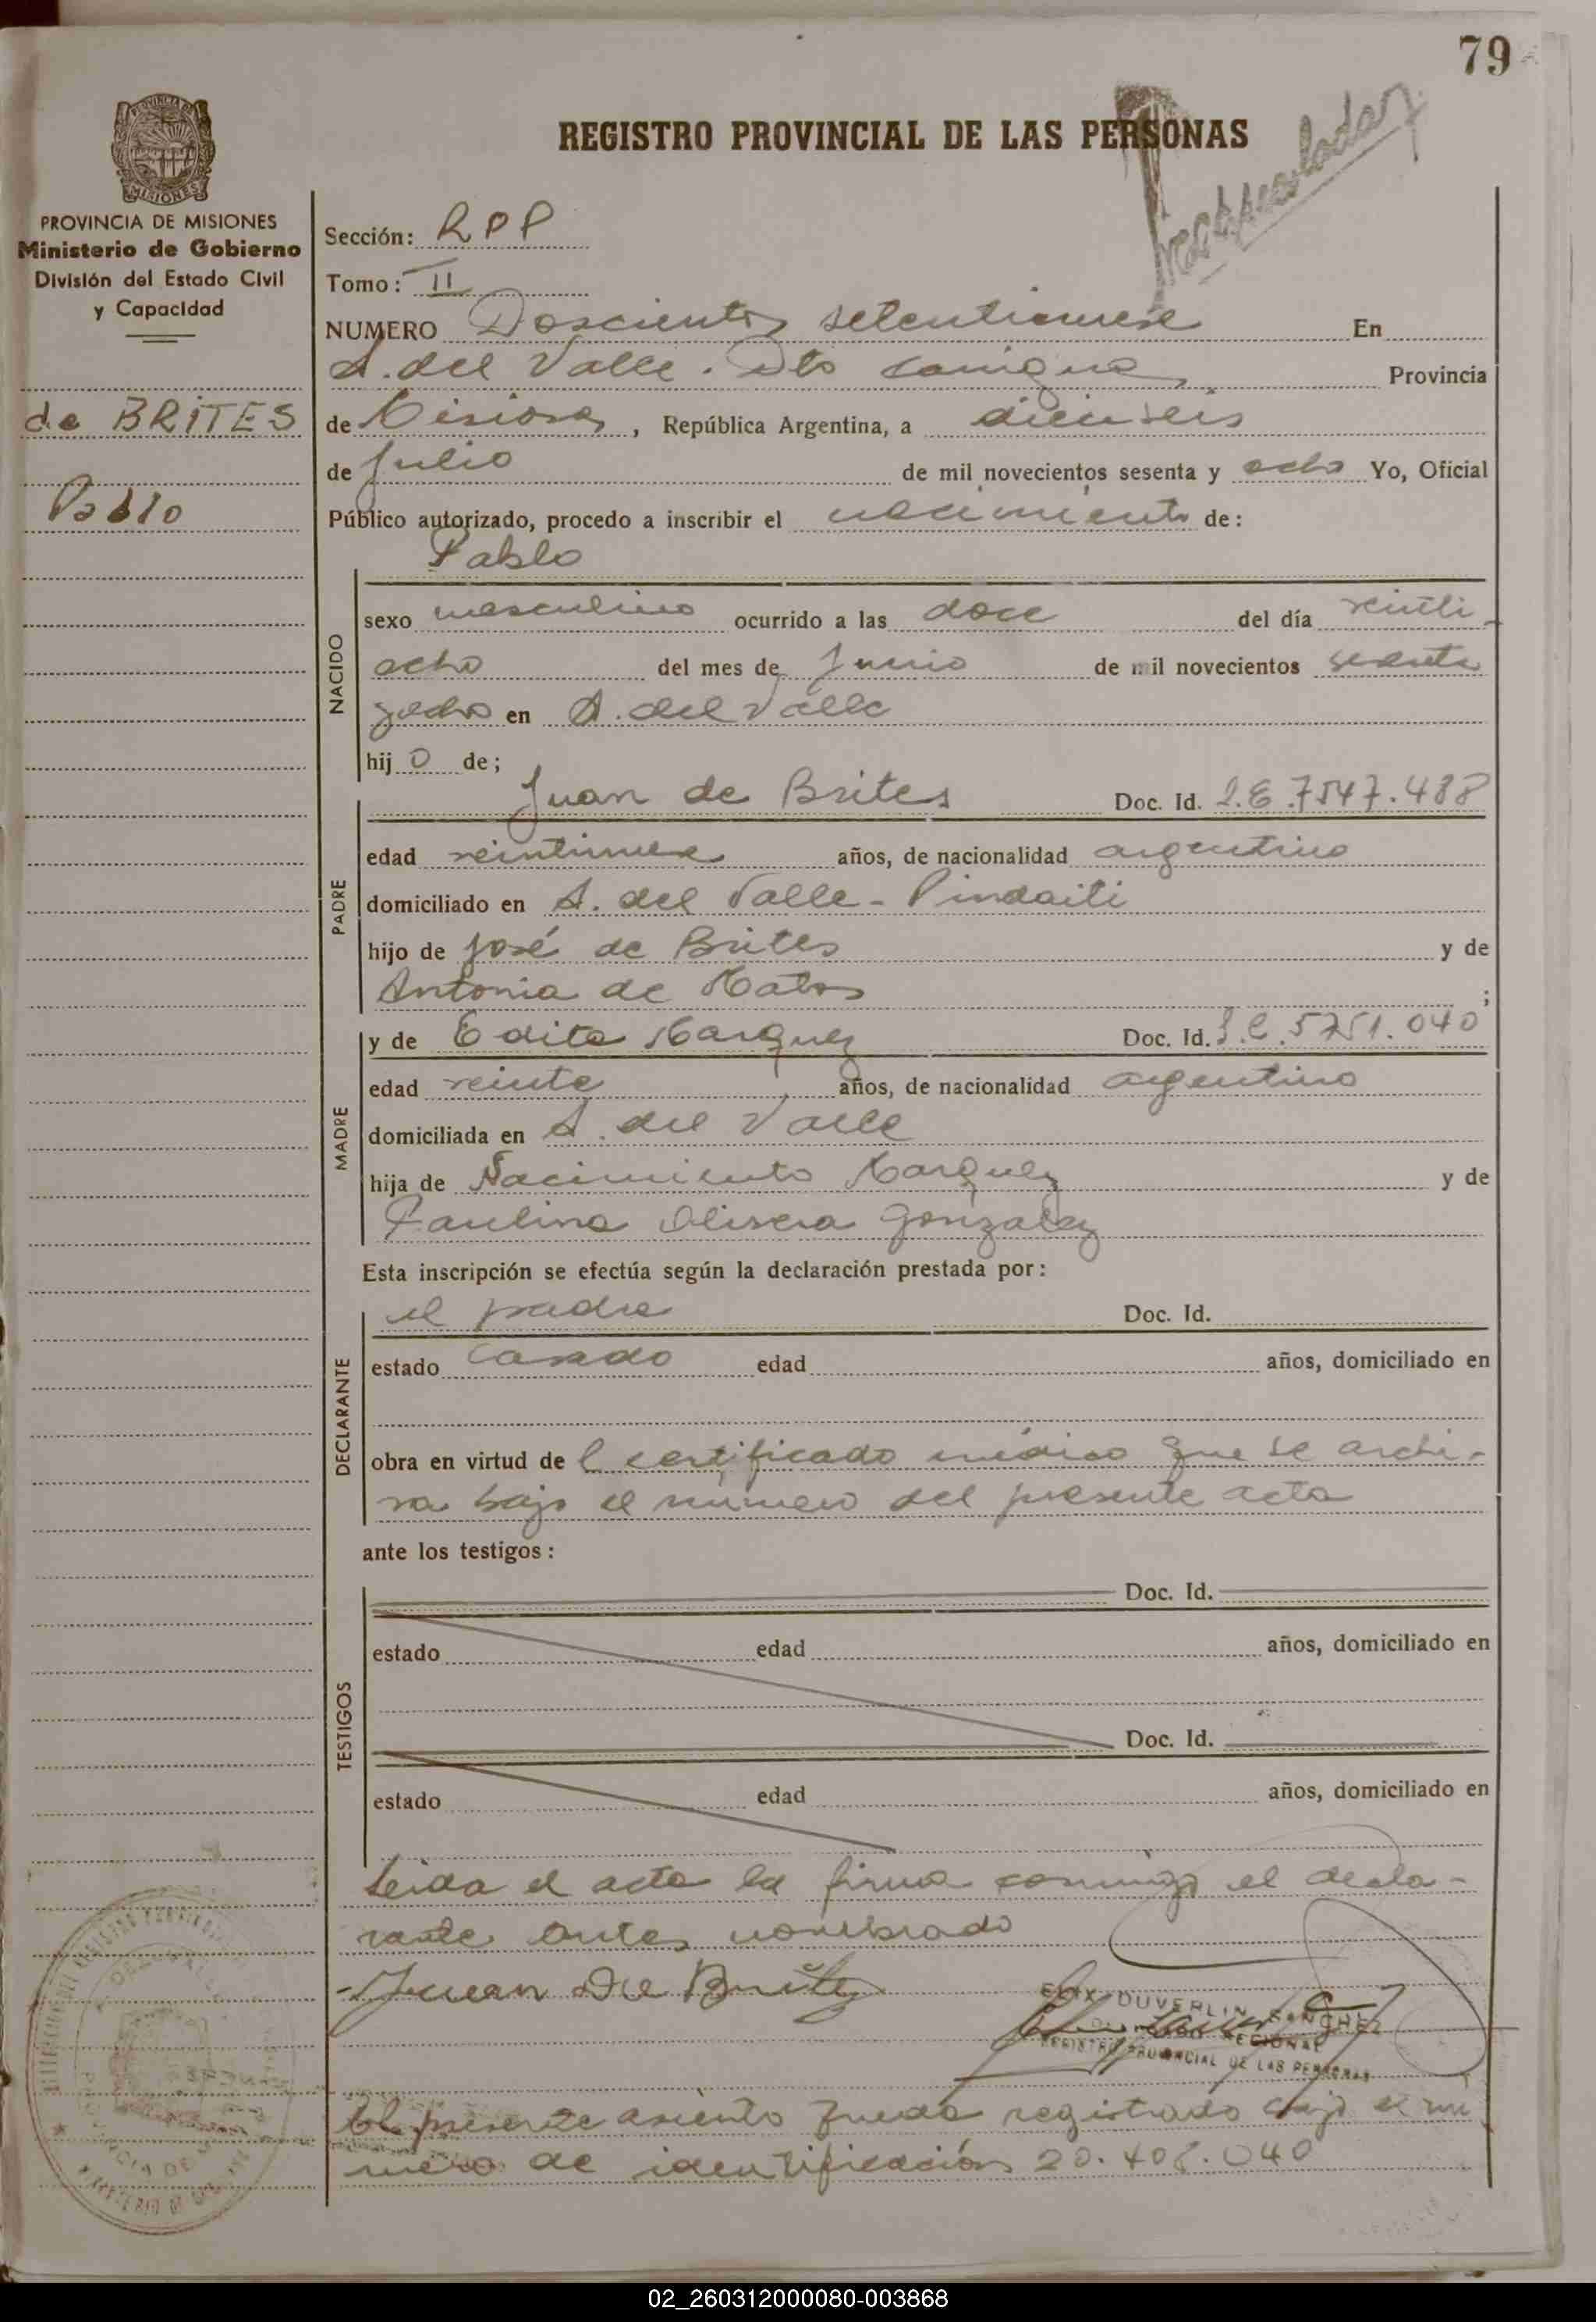 79
REGISTRO PROVINCIAL DE LAS PERSONAS
PROVINCIA DE MISIONES
Ministerio de Gobierno
División del Estado Civil
y Capacidad
de BRITES
Pablo
Sección: RPP
Tomo: II
NUMERO Doscientos setentinueve En
A. del Valle. Dto Cainguas Provincia
de Misiones, República Argentina, a dieciseis
de Julio de mil novecientos sesenta y ocho Yo, Oficial
Público autorizado, procedo a inscribir el nacimiento de:
Pablo
NACIDO
sexo masculino ocurrido a las doce del día veinti
ocho del mes de Junio de mil novecientos sesenta
y ocho en A. del Valle
hij o de;
PADRE
Juan de Brites Doc. Id. L.E. 7547.488
edad veintinueve años, de nacionalidad argentino
domiciliado en A. del Valle - Pindaiti
hijo de José de Brites y de
Antonia de Matos ;
MADRE
y de Edita Marquez Doc. Id. 5751.040
edad veinte años, de nacionalidad argentino
domiciliada en A. del Valle
hija de Nacimiento Marquez y de
Paulina Olivera Gonzalez
Esta inscripción se efectúa según la declaración prestada por:
DECLARANTE
el padre Doc. Id.
estado Casado edad años, domiciliado en
obra en virtud de l certificado médico que se archi-
va bajo el número del presente acta
ante los testigos:
TESTIGOS
Doc. Id.
estado edad años, domiciliado en
Doc. Id.
estado edad años, domiciliado en
Leida el acta la firma conmigo el decla-
rante antes nombrado
Juan De Brites
DUVERLIN SANCHEZ
REGIONAL
REGISTRO PROVINCIAL DE LAS PERSONAS
El presente asiento queda registrado bajo el nú
mero de identificación 20.408.040
02_260312000080-003868